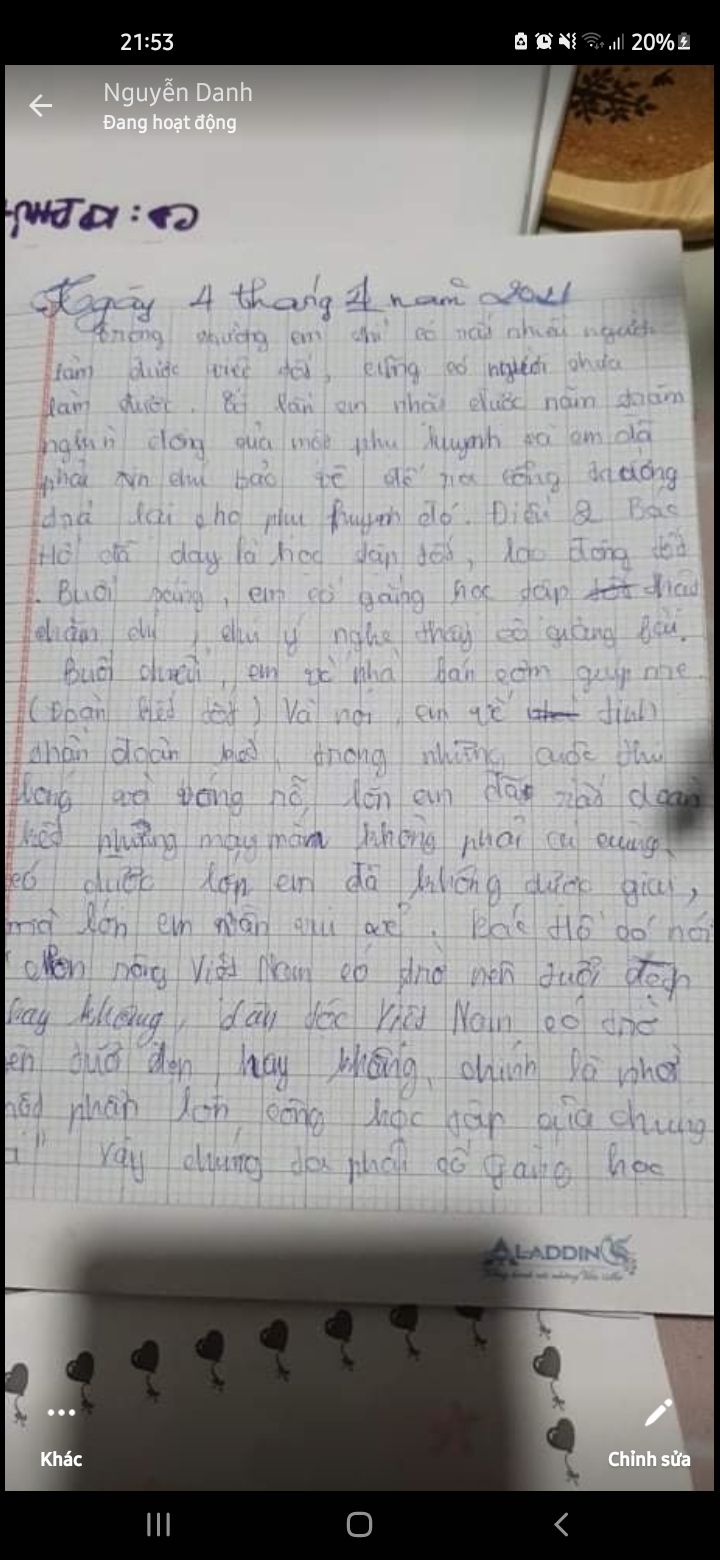 21:53
20%
Nguyễn Danh
Đang hoạt động
Ngày 4 tháng 4 năm 2021
trong trường em chỉ có rất nhiều người
làm được việc tốt, cũng có người chưa
làm được. Có lần em nhặt được năm trăm
nghìn đồng của một phụ huynh và em đã
phải xin chú bảo vệ để ra cổng trường
trả lại cho phụ huynh đó. Điều 2 Bác
Hồ đã dạy là học tập tốt, lao động tốt
. Buổi sáng, em cố gắng học tập tốt thật
chăm chỉ, chú ý nghe thầy cô giảng bài.
Buổi chiều, em về nhà bán cơm giúp mẹ.
(Đoàn kết tốt) Và nói, em về tinh
thần đoàn kết, trong những cuộc thi
bóng nổ, lớn em đã rất đoàn
kết nhưng may mắn không phải cái cũng
có được lớp em đã không được giải,
mà lớp em vẫn vui vẻ. Bác Hồ có nói
"Non sông Việt Nam có trở nên tươi đẹp
hay không, dân tộc Việt Nam có trở
đẹp hay không, chính là nhờ
phần lớn công học tập của chúng
Vậy chúng ta phải cố gắng học
ALADDIN
Khác
Chỉnh sửa